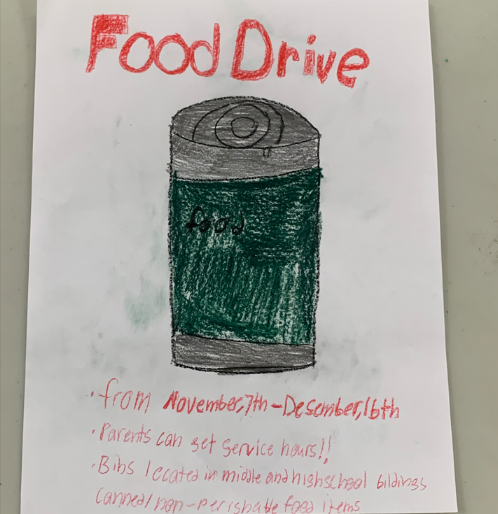 Food Drive
food
· from November,7th - Desember,16th
· Parents can get service hours!!
· Bibs located in middle and highschool bildings
canned/non-perishable food items